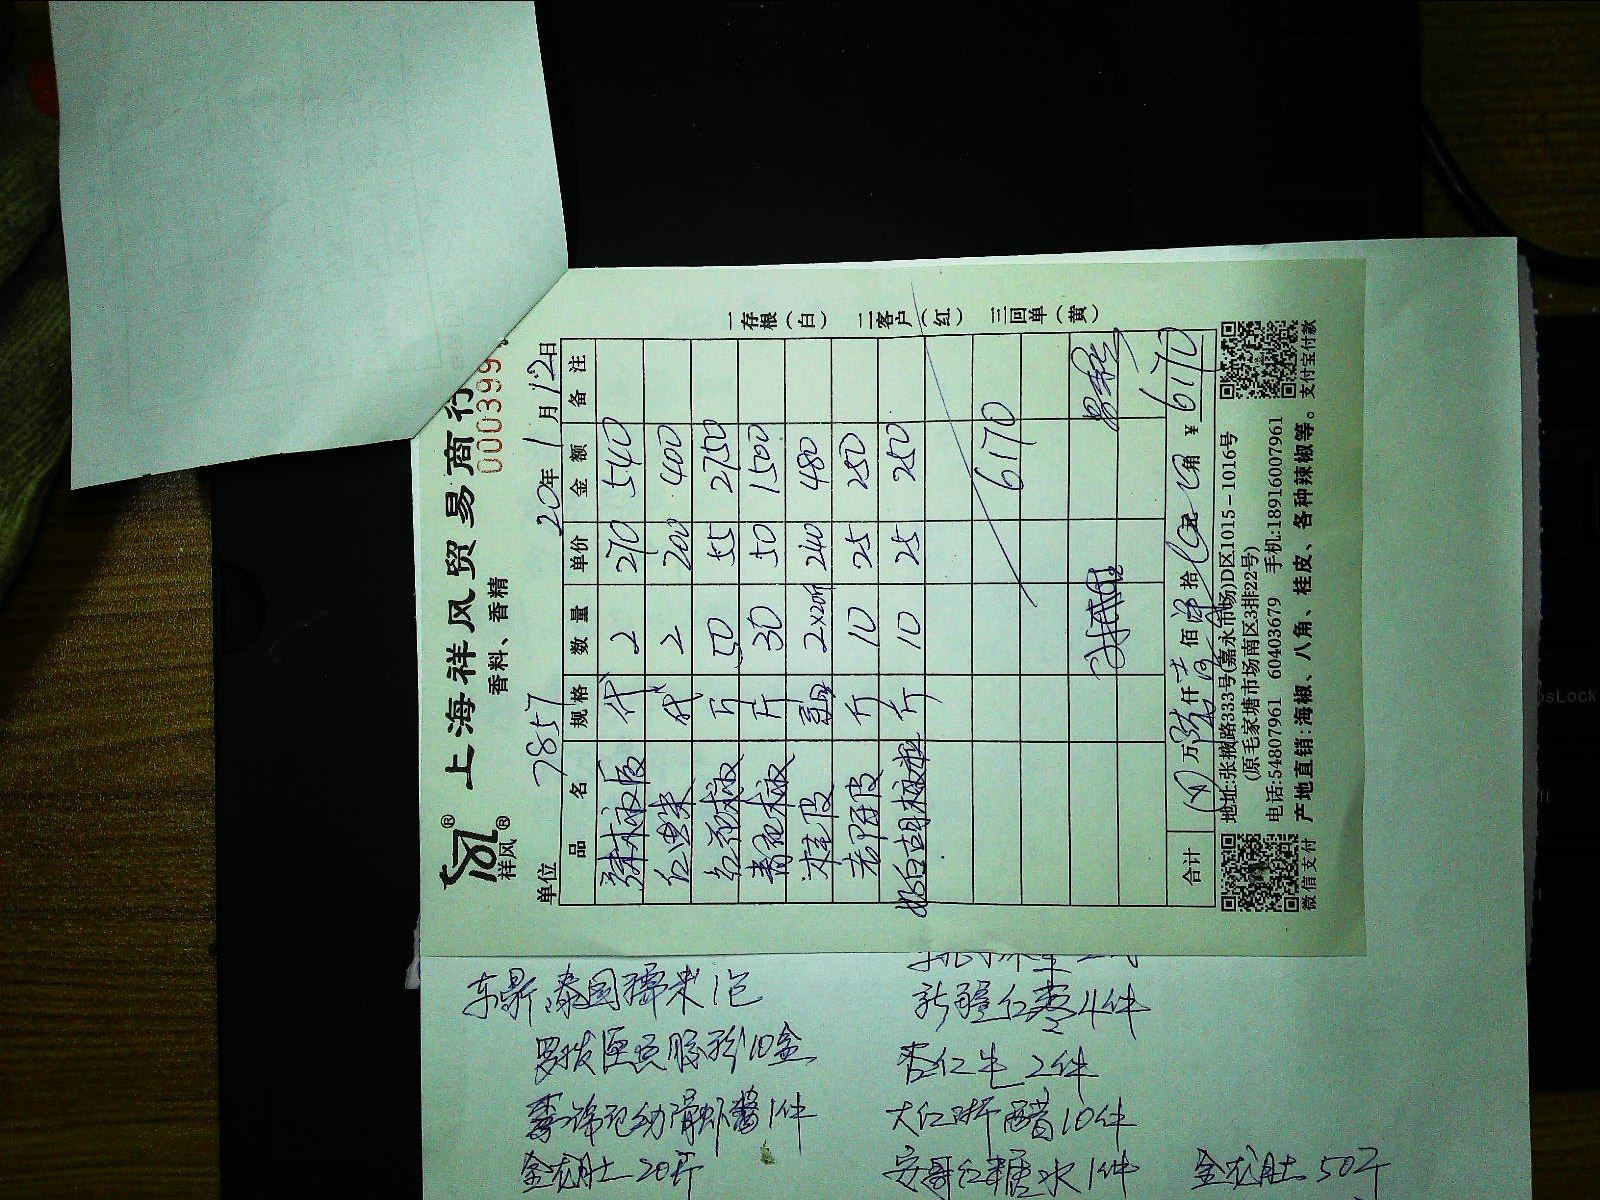 上海祥风贸易商行
祥风
香料、香精
000399
单位 7857 20年1月12日
品名 规格 数量 单价 金额 备注
2 270 540
红曲米 代 2 200 400
红花椒 斤 50 55 2750
青花椒 斤 30 50 1500
桂皮 2×20斤 240 480
老陈皮 斤 10 25 250
白胡椒粒 斤 10 25 250
6170
合计 万 仟 佰 拾 元 角 ¥ 6170
一存根(白) 二客户(红) 三回单(黄)
地址:张掖路333号(嘉永市场)D区1015-1016号
(原毛家塘市场南区3排22号)
电话:54807961 60403679 手机:18916007961
产地直销:海椒、八角、桂皮、各种辣椒等。
微信支付
支付宝付款
泰国糯米1包
10盒
幼滑虾酱1件
20斤
新疆红枣4件
杏仁 2件
大红浙醋10件
安哥红糖水1件
50斤